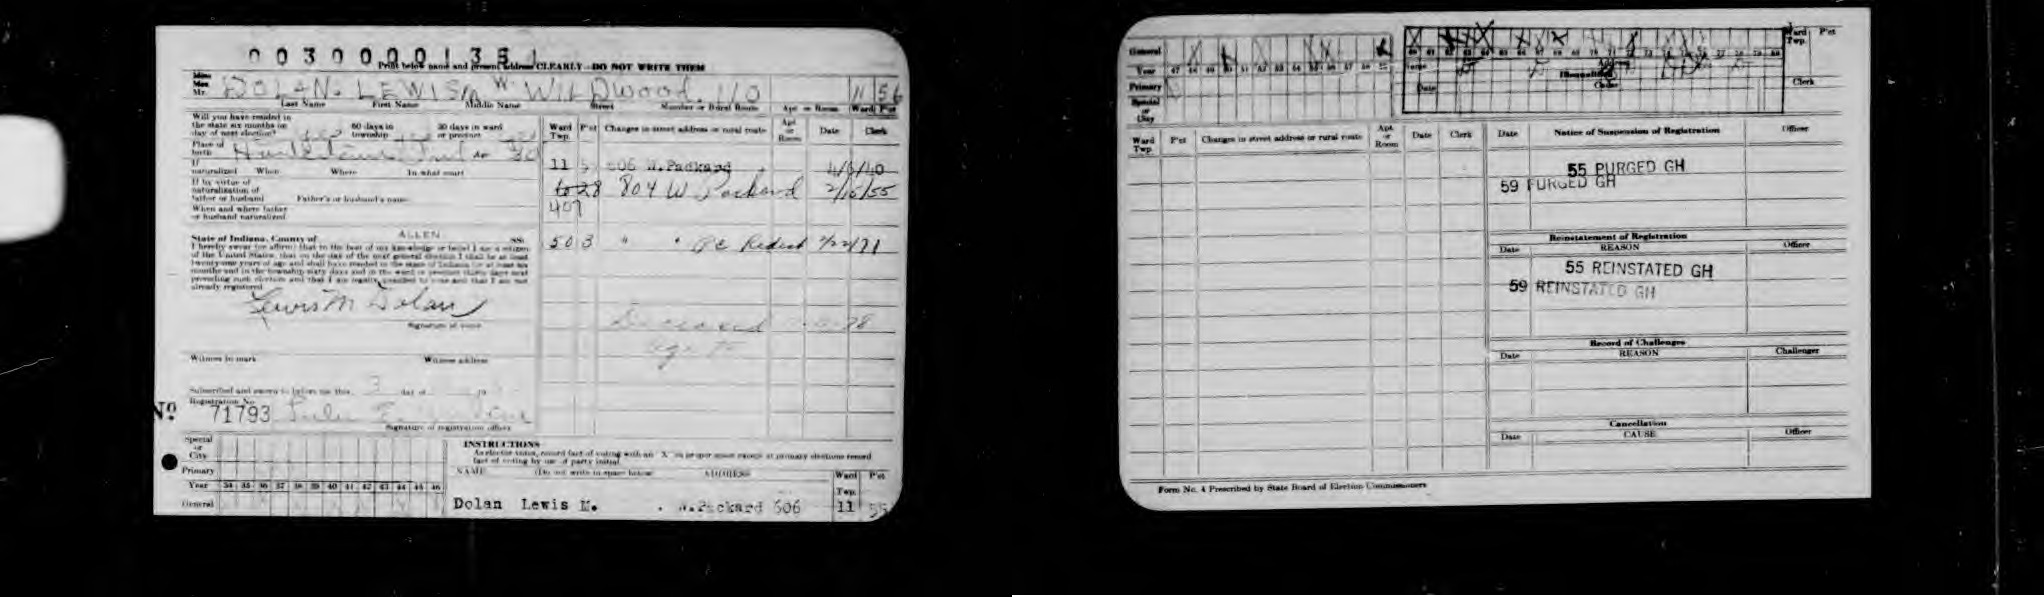 00300001351
Print below name and present address CLEARLY - DO NOT WRITE THEM
Miss
Mrs.
Mr. DOLAN. LEWIS M W. WILDWOOD. 110 11 56
Last Name First Name Middle Name Street Number or Rural Route Apt. or Room Ward P'ct
Will you have resided in
the state six months on
day of next election?
60 days in
township
30 days in ward
or precinct
Place of
birth
If
naturalized When Where In what court
If by virtue of
naturalization of
father or husband Father's or husband's name
When and where father
or husband naturalized
State of Indiana, County of ALLEN SS:
I hereby swear (or affirm) that to the best of my knowledge or belief I am a citizen
of the United States, that on the day of the next general election I shall be at least
twenty-one years of age and shall have resided in the state of Indiana for at least six
months and in the township sixty days and in the ward or precinct thirty days next
preceding such election and that I am legally entitled to vote and that I am not
already registered
Lewis M Dolan
Signature of voter
Witness to mark Witness address
Subscribed and sworn to before me this 3 day of 19
Registration No.
No. 71793
Signature of registration officer
Ward
Twp. P'ct Changes in street address or rural route Apt.
or
Room Date Clerk
11 606 W. Packard 4/3/40
28 804 W Packard 2/15/55
407
503 " " PC Redist 2/22/71
Deceased 78
Special
or
City
Primary
Year 34 35 36 37 38 39 40 41 42 43 44 45 46
General
INSTRUCTIONS
As elector votes, record fact of voting with an "X" in proper space except at primary elections record
fact of voting by use of party initial.
NAME (Do not write in space below) ADDRESS Ward
Twp. P'ct
Dolan Lewis M. W.Packard 606 11 55
General
Year 47 48 49 50 51 52 53 54 55 56 57 58 59
Primary
Special
or
City
60 61 62 63 64 65 66 67 68 69 70 71 72 73 74 75 76 77 78 79 80
Ward
Twp. P'ct
Name Address
Date Clerk
Ward
Twp. P'ct Changes in street address or rural route Apt.
or
Room Date Clerk
Date Notice of Suspension of Registration Officer
55 PURGED GH
59 PURGED GH
Reinstatement of Registration
Date REASON Officer
55 REINSTATED GH
59 REINSTATED GH
Record of Challenges
Date REASON Challenger
Cancellation
Date CAUSE Officer
Form No. 4 Prescribed by State Board of Election Commissioners